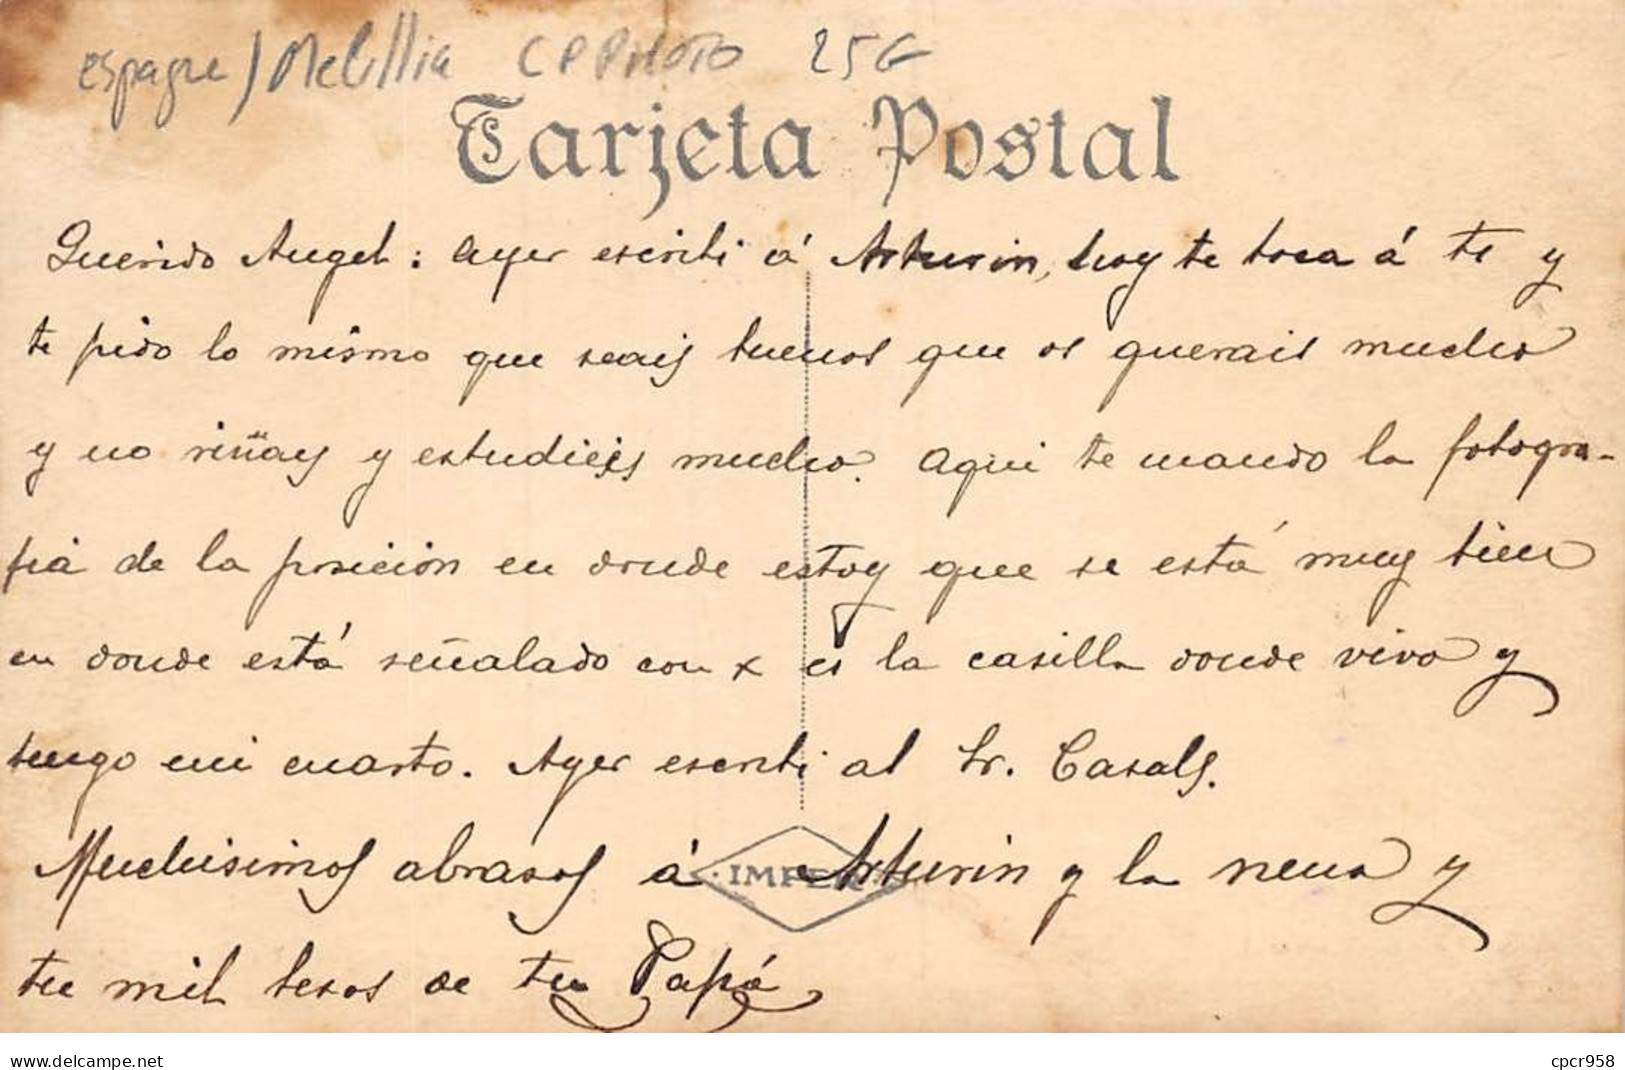 espagne / Melillia CPPHOTO 25 €
Tarjeta Postal
Querido Angel: Ayer escribi á Arturin, hoy te toca á ti y
te pido lo mismo que seais buenos que os querais mucho
y no riñais y estudieis mucho. Aqui te mando la fotogra-
fia de la posición en donde estoy que se está muy bien
en donde está señalado con x es la casilla donde vivo y
tengo mi cuarto. Ayer escribi al Sr. Casals.
Muchisimos abrasos á Arturin y la nena y
IMPER
tu mil besos de tu Papá
www.delcampe.net
cpcr958